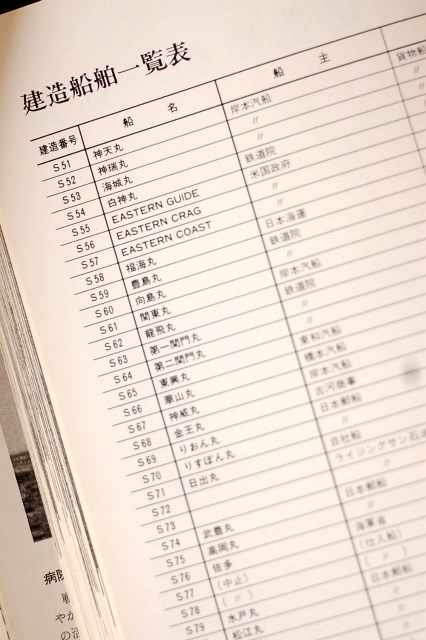 建造船舶一覧表
建造番号 船名 船主 貨物船
S51 神天丸 岸本汽船
S52 神瑞丸 〃
S53 海城丸 〃
S54 白神丸 鉄道院
S55 EASTERN GUIDE 米国政府
S56 EASTERN CRAG 〃
S57 EASTERN COAST 〃
S58 福海丸 日本海運
S59 豊島丸 鉄道院
S60 向島丸 〃
S61 関東丸 岸本汽船
S62 龍飛丸 鉄道院
S63 第一関門丸 〃
S64 第二関門丸 〃
S65 東興丸 東和汽船
S66 華山丸 橋本汽船
S67 神威丸 岸本汽船
S68 金王丸 古河商事
S69 りおん丸 日本郵船
S70 りすぼん丸 〃
S71 日出丸 自社船
S72 ライジングサン石
S73 〃
S74 武豊丸 日本郵船
S75 高岡丸 〃
S76 佐多 海軍省
S77 (中止) (仕入船)
S78 (〃) (〃)
S79 水戸丸 日本郵船
松江丸 〃
病
やか
の